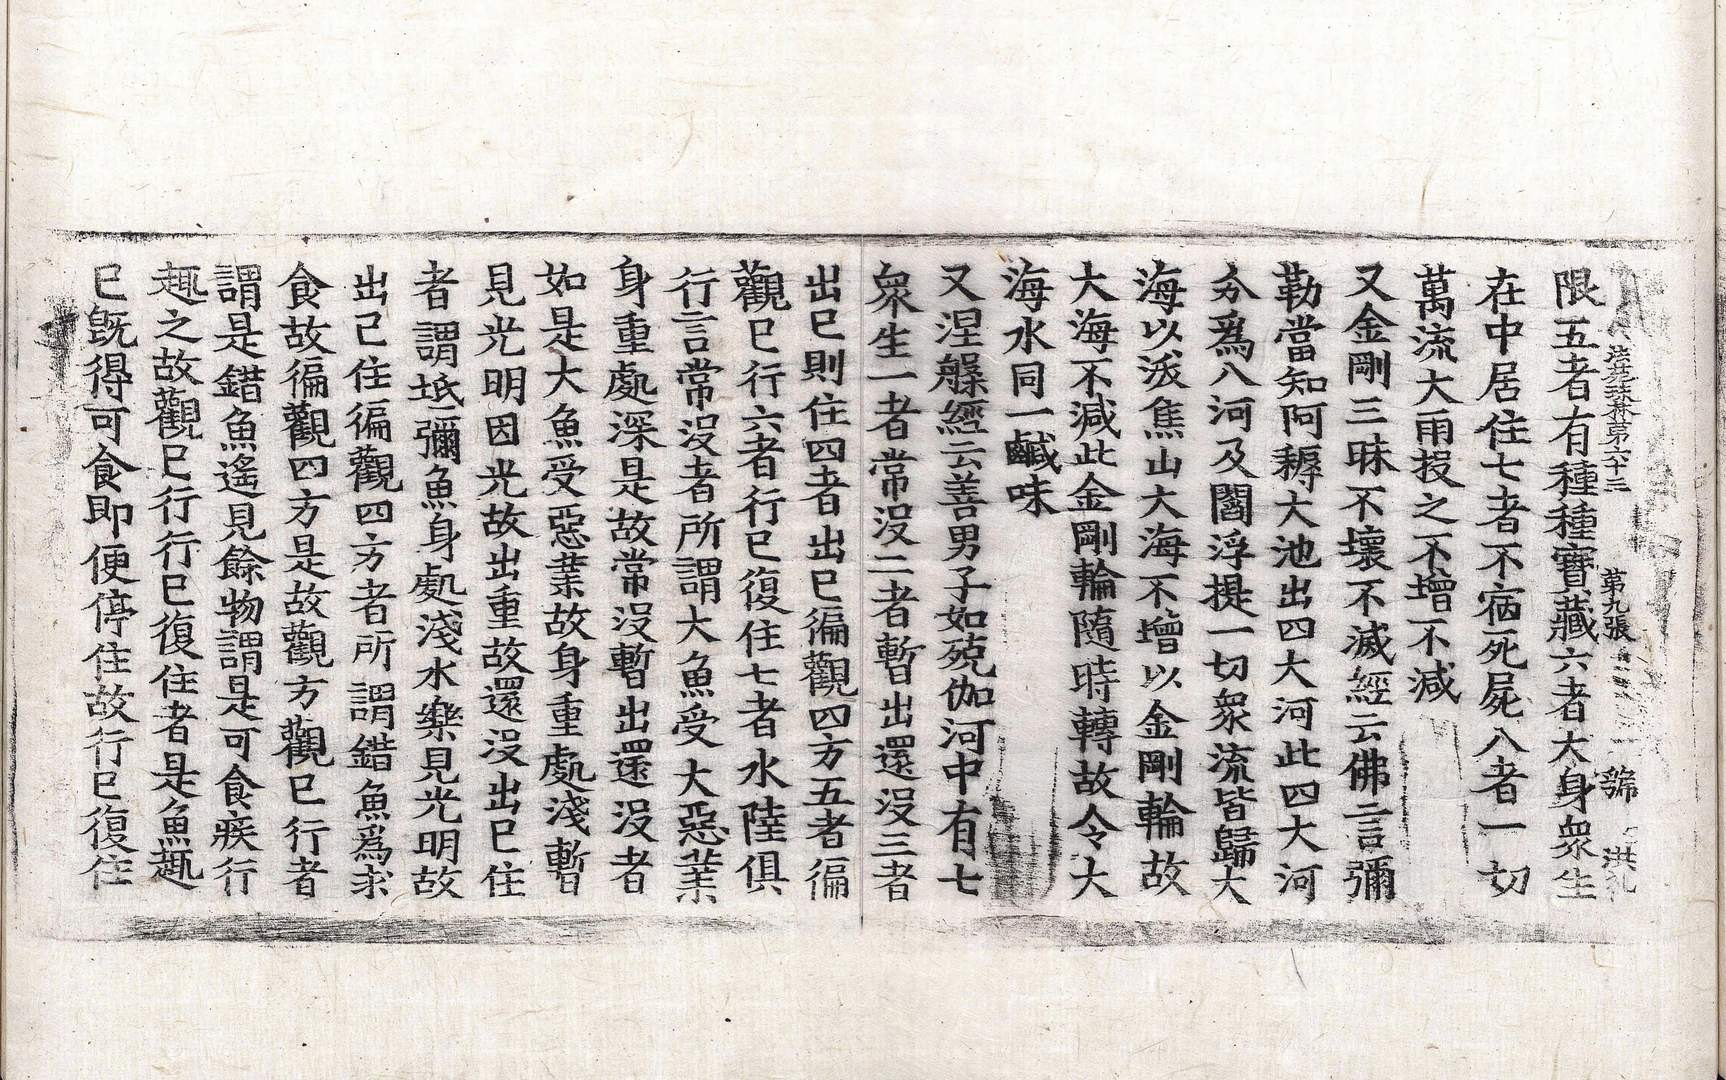 法苑珠林第六十三 第九張 號 洪
限五者有種種寶藏六者大身衆生
在中居住七者不宿死屍八者一切
萬流大雨投之不增不減
又金剛三昧不壞不滅經云佛言彌
勒當知阿耨大池出四大河此四大河
分爲八河及閻浮提一切衆流皆歸大
海以沃焦山大海不增以金剛輪故
大海不減此金剛輪隨時轉故令大
海水同一鹹味
又涅槃經云善男子如殑伽河中有七
衆生一者常沒二者暫出還沒三者
出已則住四者出已徧觀四方五者徧
觀已行六者行已復住七者水陸俱
行言常沒者所謂大魚受大惡業
身重處深是故常沒暫出還沒者
如是大魚受惡業故身重處淺暫
見光明因光故出重故還沒出已住
者謂坻彌魚身處淺水樂見光明故
出已住徧觀四方者所謂錯魚爲求
食故徧觀四方是故觀方觀已行者
謂是錯魚遙見餘物謂是可食疾行
趣之故觀已行行已復住者是魚趣
已旣得可食即便停住故行已復住